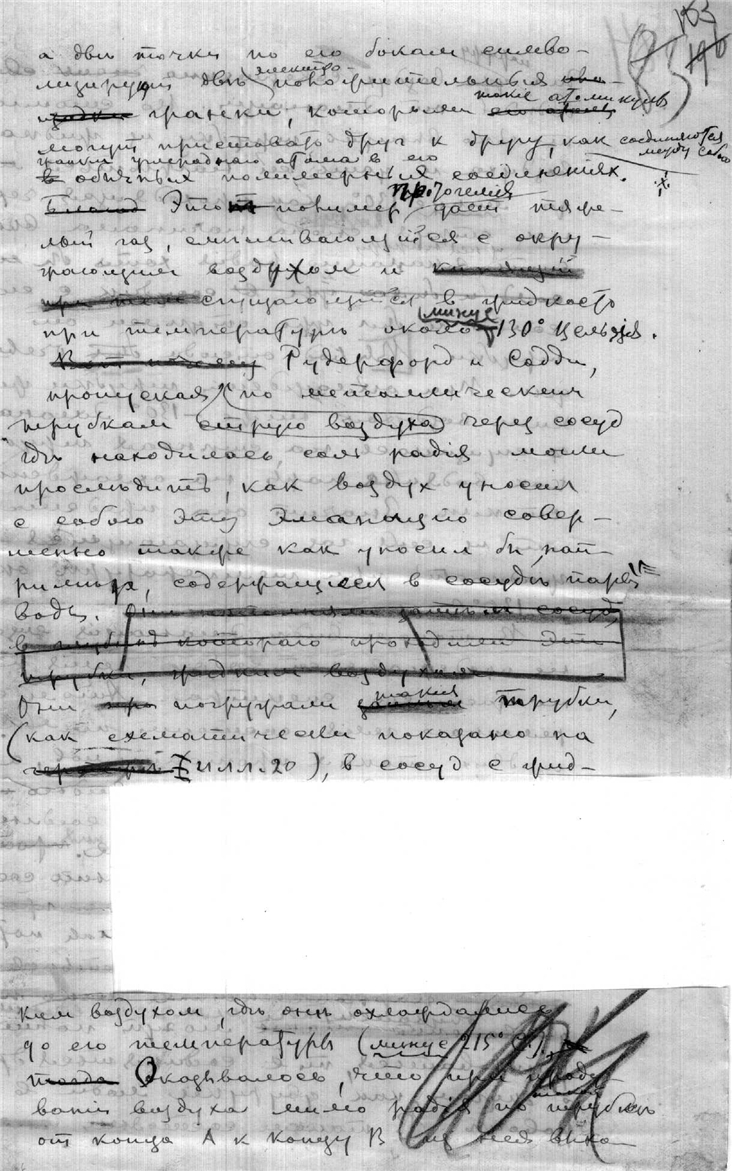 163
190
а двѣ точки по его бокам симво-
электро-
лизируют двѣ положительныя
такіе атомикулы
гранки, которыми
могут приставать друг к другу, как соединяются
между собою
гранки углероднаго атома в его
в обычных полимерных соединениях.
Этот полимер протогелия дает тяже-
лый газ, смешивающийся с окру-
жающим воздухом и
сгущающийся в жидкость
при температурѣ около минус 130° Цельзія.
Рудерфорд и Содди,
пропуская по металлическим
трубкам струю воздуха через сосуд
гдѣ находилась соль радія могли
прослѣдить, как воздух уносил
с собою эту Эманацію совер-
шенно также как уносил бы, нап-
римѣр, содержащіеся в сосудѣ пары
воды.
Они погружали такія трубки,
(как схематически показано на
илл. 20), в сосуд с жид-
ким воздухом, гдѣ они охлаждались
до его температуры (минус 215° С).
Оказывалось, что при проду-
ваніи воздуха мимо радія по трубкѣ
от конца А к концу В из нея выхо-